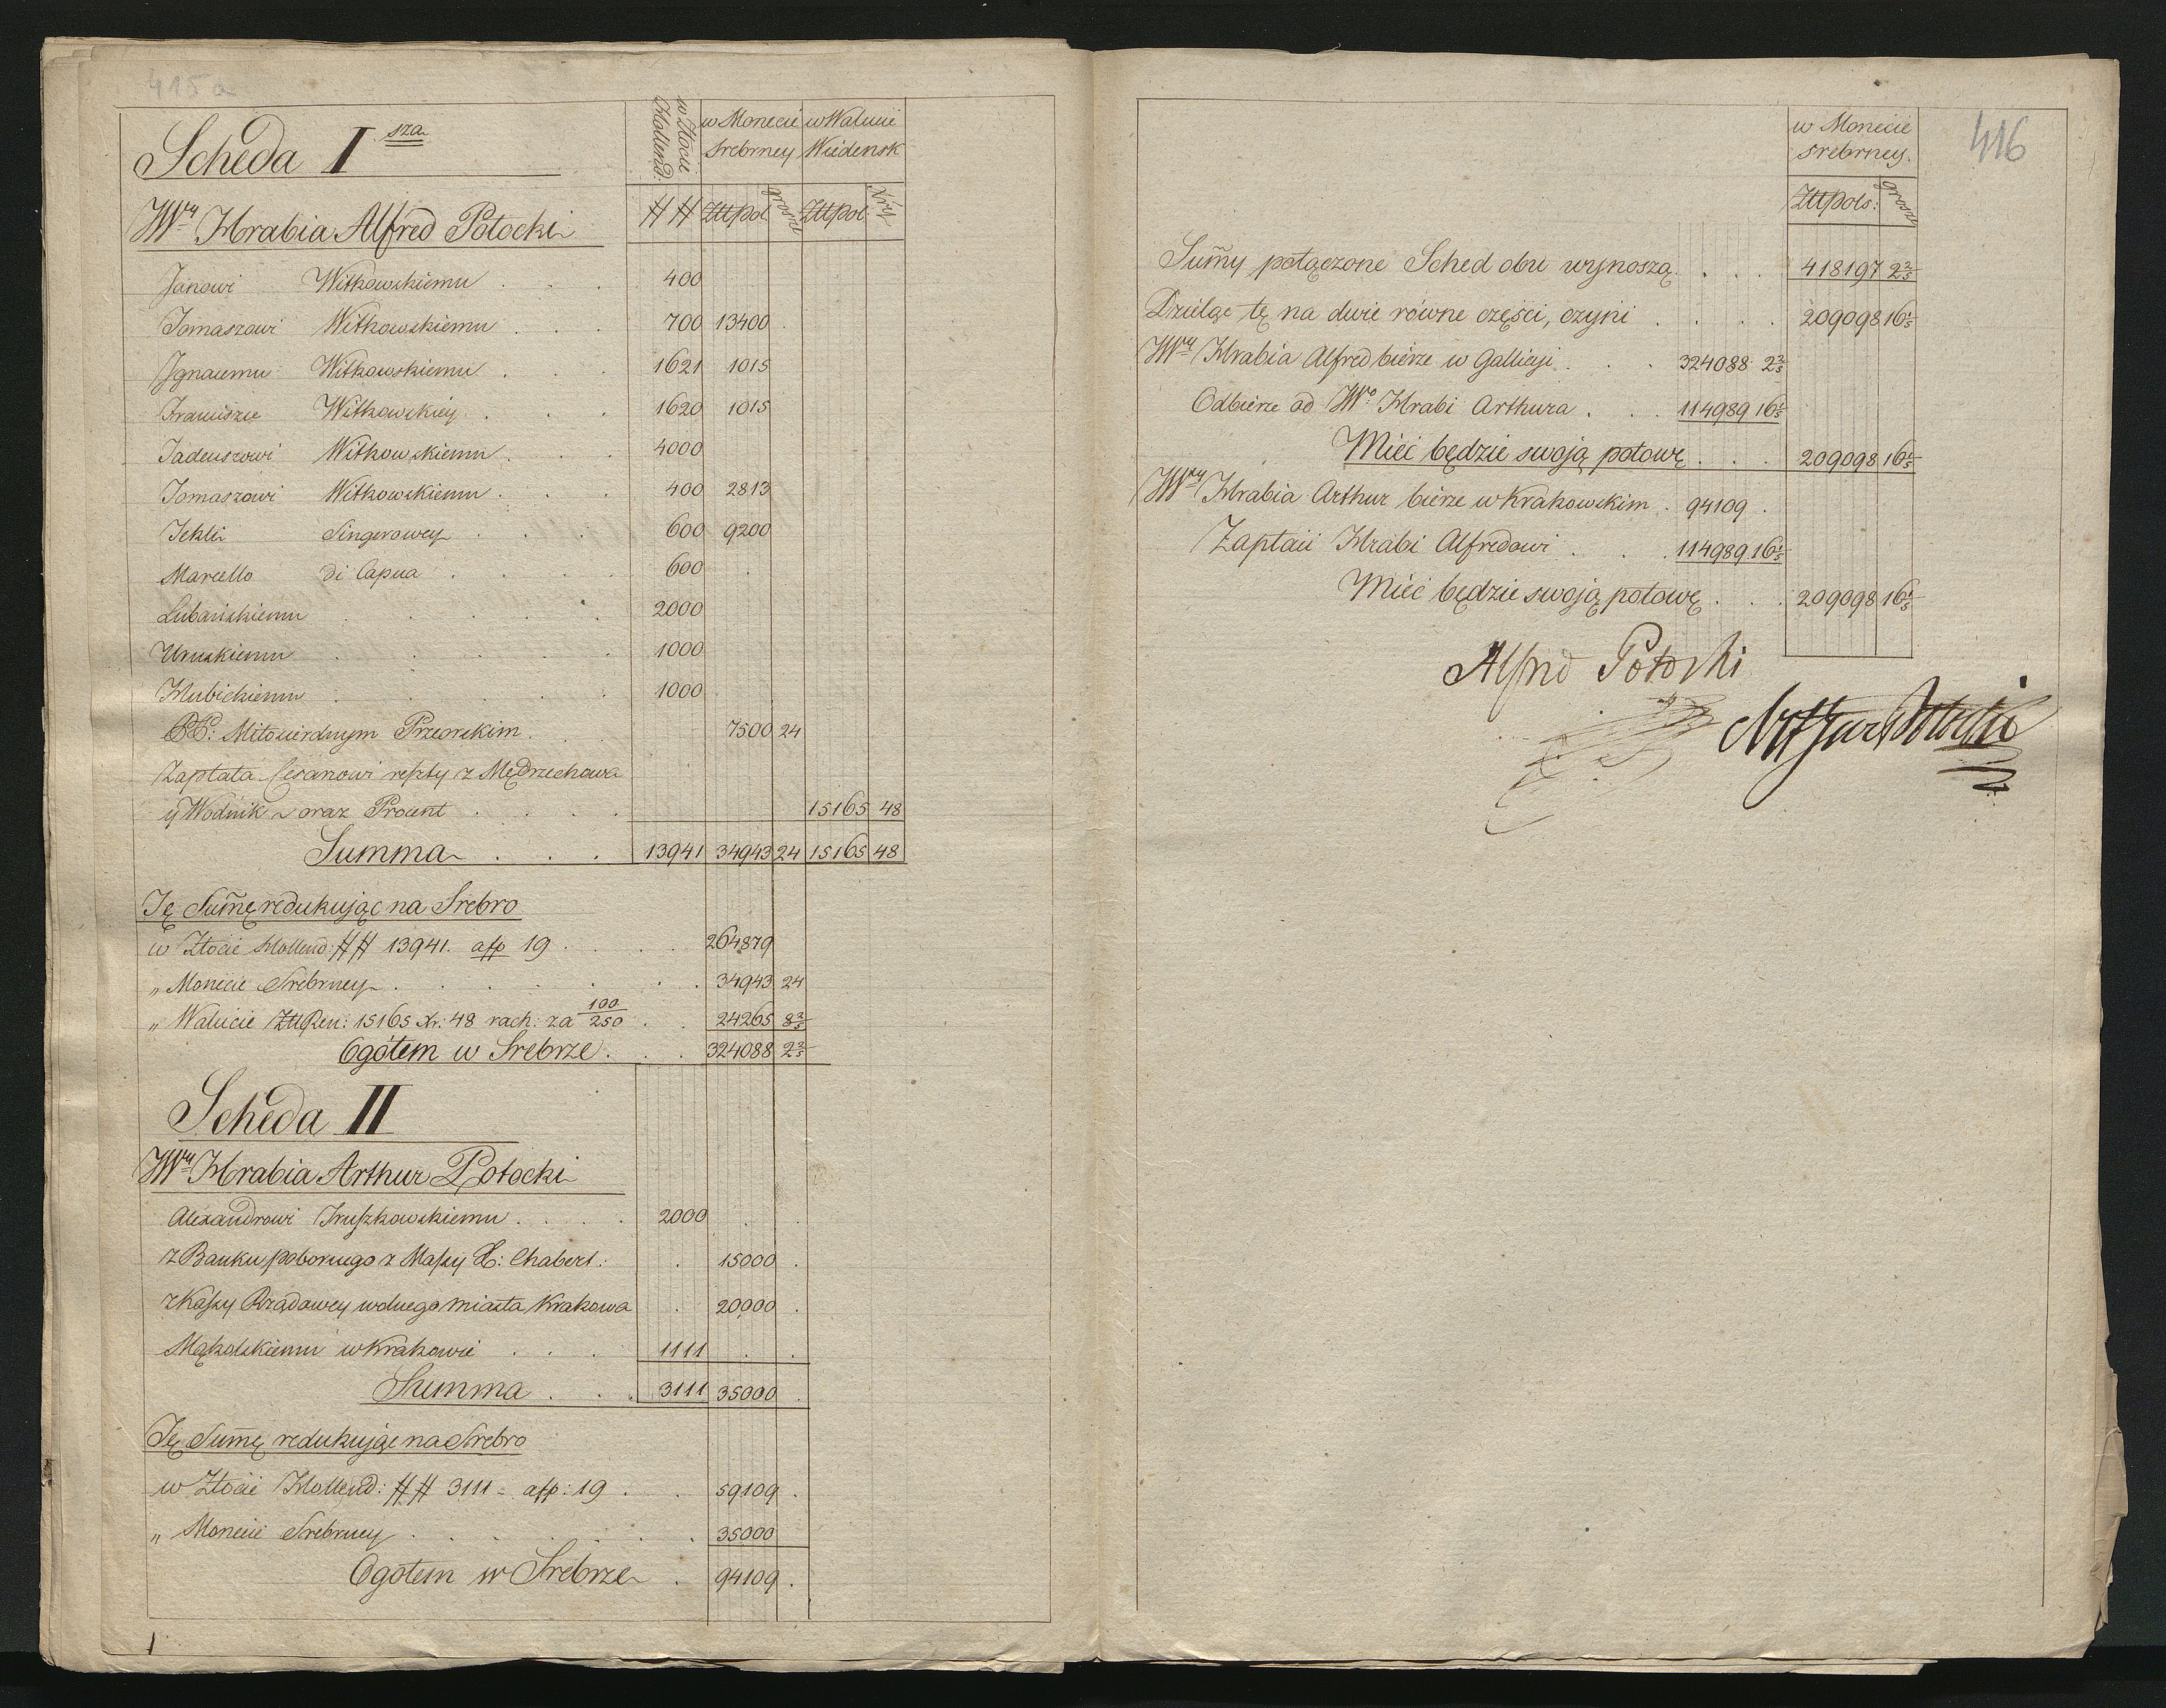 415 a
Scheda I sza
w Złocie Hollend: w Monecie Srebrney w Walucie Wiedensk
## Złłpol grosze Złłpol: Xry
JWy Hrabia Alfred Potocki
Janowi Witkowskiemu . . . 400
Tomaszowi Witkowskiemu . . . 700 13400 .
Jgnacemu Witkowskiemu . . . 1621 1015
Franciszce Witkowskiey . . . 1620 1015
Tadeuszowi Witkowskiemu . . . 4000
Tomaszowi Witkowskiemu . . . 400 2813
Tekli Singerowey . . . 600 9200
Marcello di Capua . . . . 600
Lubańskiemu . . . . . 2000
Uruskiemu . . . . . 1000
Hubickiemu . . . . . 1000
PP: Miłosierdnym Przeorskim . . . 7500 24
Zapłata Cesarowi reszty z Mędrzechowa
y Wodnik oraz Procent . . . . 15165 48
Summa . . . 13941 34943 24 15165 48
Tę Sum̃ę redukując na Srebro
w Złocie Hollend: ## 13941. afp 19 . . . . 264879
„ Monecie Srebrney . . . . . . 34943 24
„ Walucie ZłłRen: 15165 Xr: 48 rach: za 100/250 . . 24265 8 2/5
Ogółem w Srebrze . . . 324088 2 2/5
Scheda II
JWy Hrabia Arthur Potocki
Alexandrowi Truszkowskiemu . . . . 2000 . .
z Banku pobornego z Massy X: Chabert: . 15000 .
z Kassy Rządowey wolnego miasta Krakowa . 20000 .
Mąkolskiemu w Krakowie . . . 1111 . .
Summa . . . 3111 35000 .
Tę Sum̃ę redukując na Srebro
w Złocie Hollend: ## 3111 = afp: 19 . . 59109 .
„ Monecie Srebrney . . . . . . 35000
Ogółem w Srebrze . 94109 .
416
w Monecie Srebrney.
Złłpols: grosze
Sum̃y połączone Sched obu wynoszą . . . . 418197 2 2/5
Dzieląc tę na dwie równe części, czyni . . . . 209098 16 1/5
JWy Hrabia Alfred bierze w Gallicyi . . . 324088 2 2/5
Odbierze od JWo Hrabi Arthura . . . 114989 16 1/5
Mieć będzie swoją połowę . . . 209098 16 1/5
JWy Hrabia Arthur bierze w Krakowskim . 94109 .
Zapłaci Hrabi Alfredowi . . . 114989 16 1/5
Mieć będzie swoją połowę . . . 209098 16 1/5
Alfred Potocki
Arthur Potocki